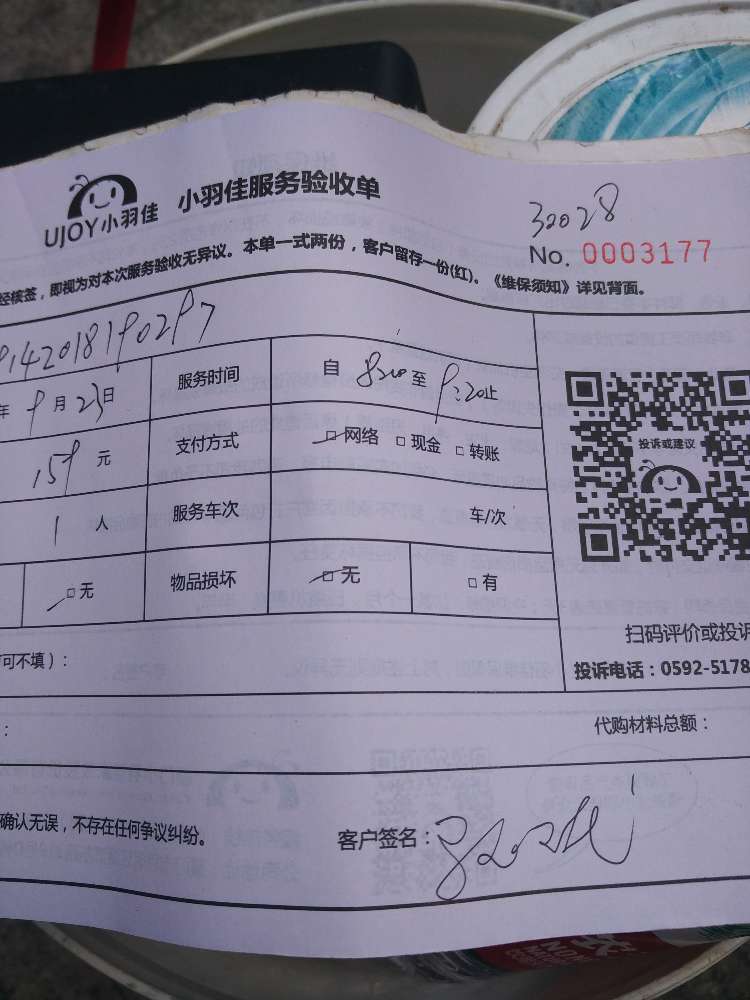 UJOY小羽佳 小羽佳服务验收单
32028
No. 0003177
经核签，即视为对本次服务验收无异议。本单一式两份，客户留存一份(红)。《维保须知》详见背面。
年 9 月 23 日 服务时间 自 8:20 至 9:20 止
159 元 支付方式 □网络 □现金 □转账
投诉或建议
1 人 服务车次 车/次
□无 物品损坏 □无 □有
扫码评价或投诉
可不填)：
投诉电话：0592-5178
代购材料总额：
确认无误，不存在任何争议纠纷。
客户签名：